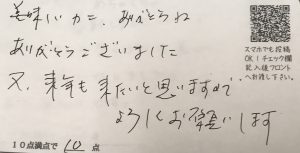 美味しいカニ、ありがとうね
ありがとうございました
又、来年も来たいと思いますので
よろしくお願いします
スマホでも投稿
OK！チェック欄
記入後フロント
へお渡し下さい。
10点満点で 10 点